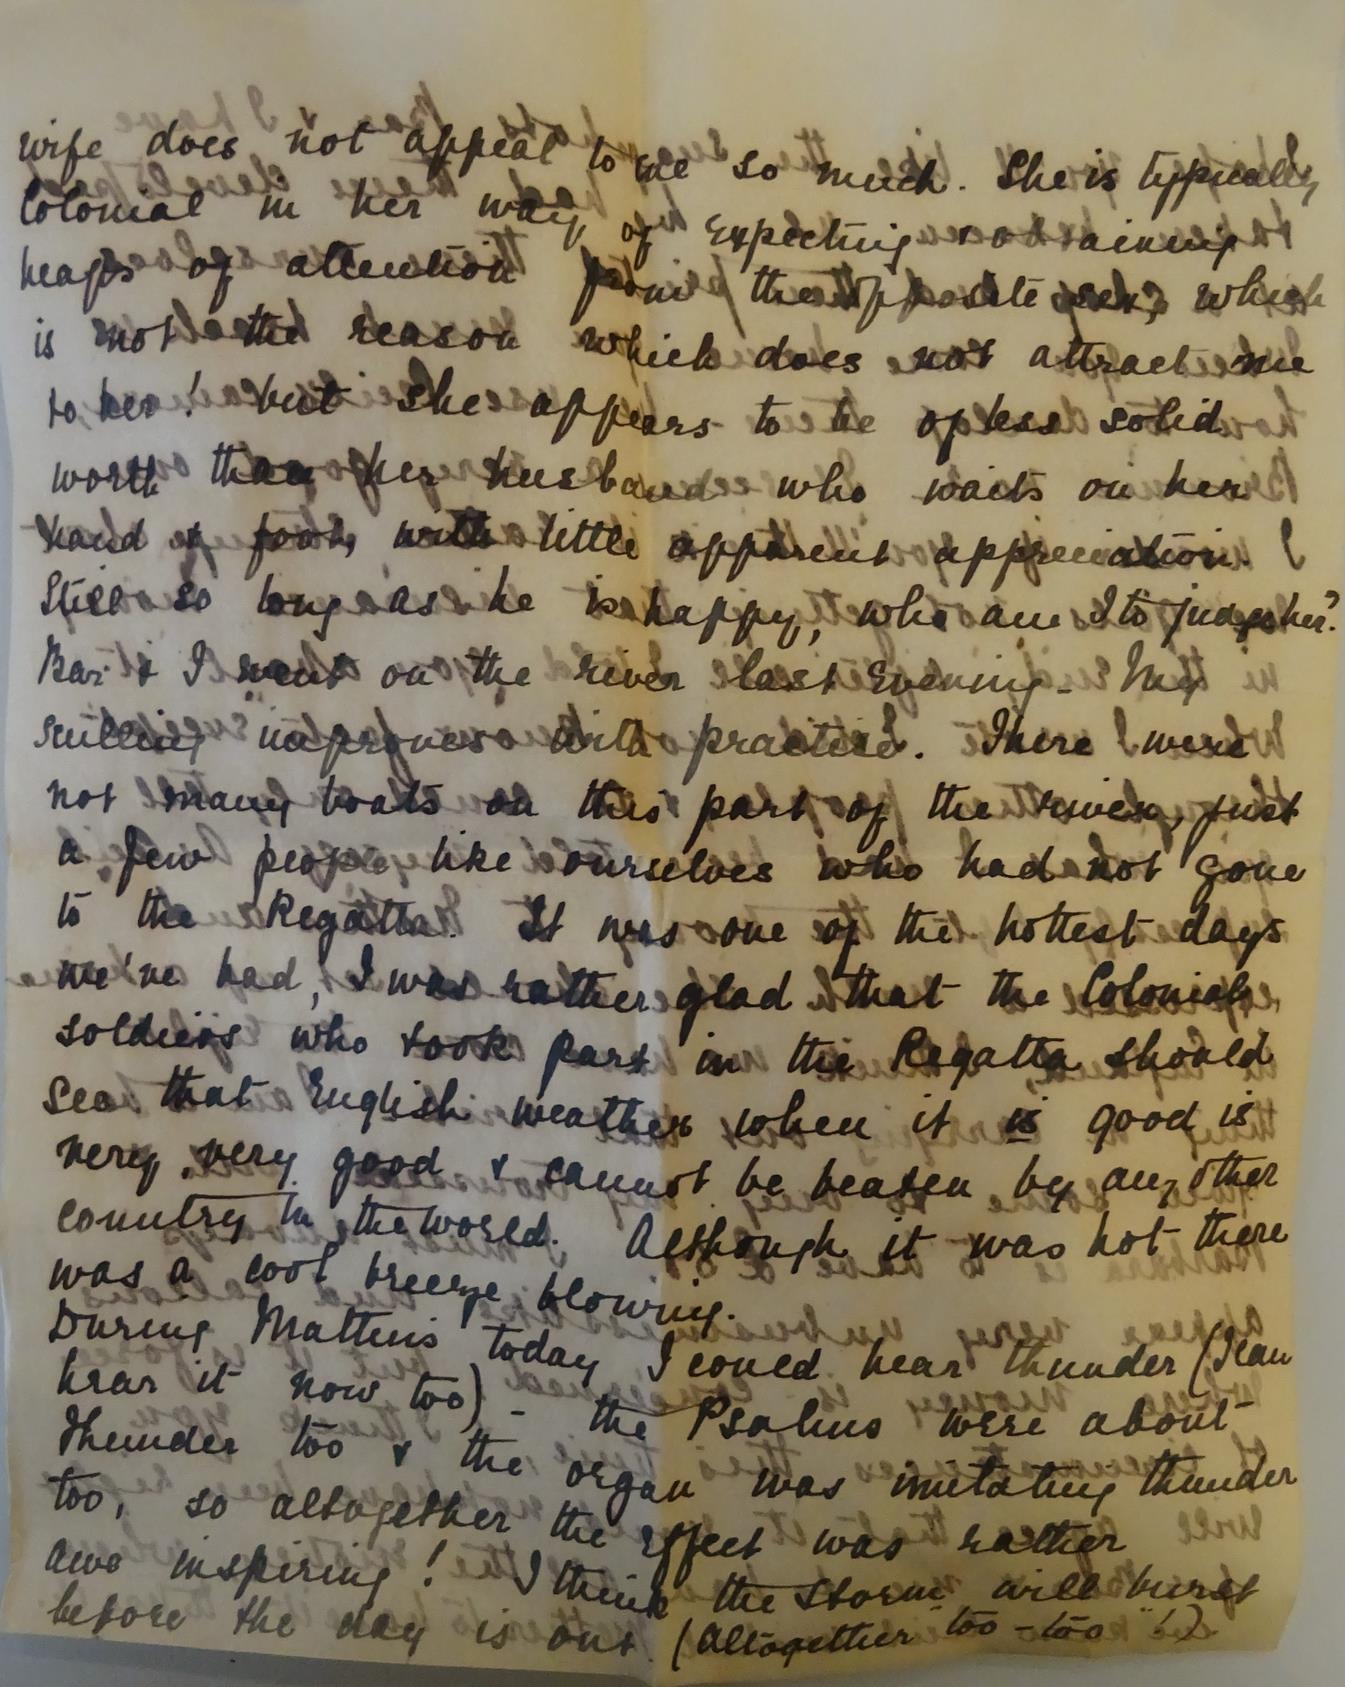 wife does not appeal to me so much. She is typically
Colonial in her way of expecting & obtaining
heaps of attention from the opposite sex, which
is not the reason which does not attract me
to her! but she appears to be of less solid
worth than her husband who waits on her
hand & foot, with little apparent appreciation.
Still so long as he is happy, who am I to judge her?
Bar & I went on the river last evening - My
sculling improves with practise. There were
not many boats on this part of the river, just
a few people like ourselves who had not gone
to the Regatta. It was one of the hottest days
we've had, I was rather glad that the Colonial
soldiers who took part in the Regatta should
see that English weather when it is good is
very, very good & cannot be beaten by any other
country in the world. Although it was hot there
was a cool breeze blowing.
During Mattins today I could hear thunder (I can
hear it now too) - the Psalms were about
thunder too & the organ was imitating thunder
too, so altogether the effect was rather
awe inspiring! I think the storm will burst
before the day is out. (Altogether "too-too"!)